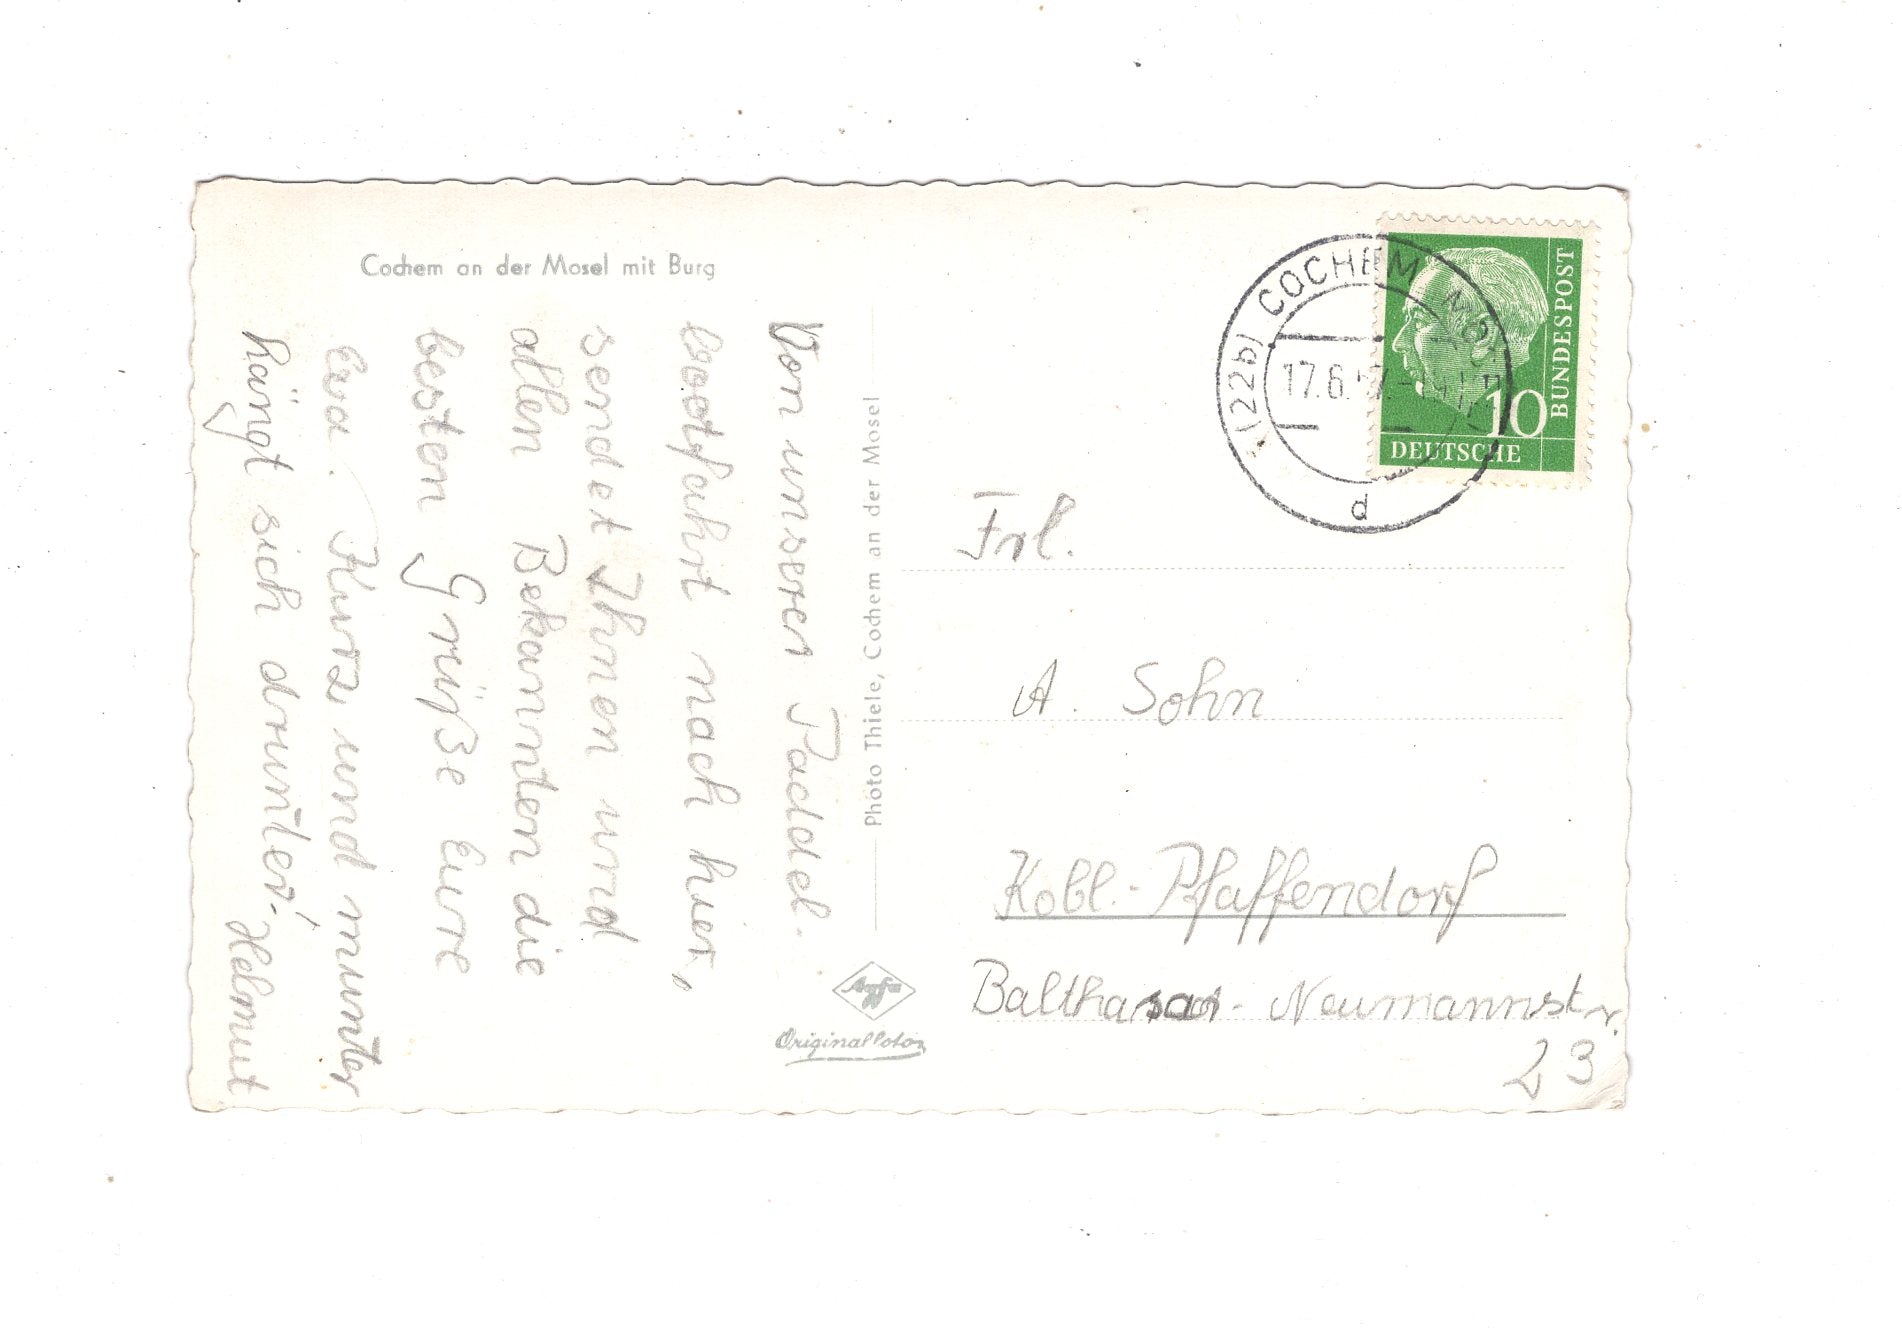 Cochem an der Mosel mit Burg
Von unserer Paddel-
bootfahrt nach hier,
sendet Ihnen und
allen Bekannten die
besten Grüße Eure
Eva. Kurz und munter
hängt sich drunter. Helmut
Photo Thiele, Cochem an der Mosel
Agfa
Originalfoto
(22b) COCHEM MOSEL
17.6.57
d
10
DEUTSCHE
BUNDESPOST
Frl.
A. Sohn
Kobl.-Pfaffendorf
Balthasar-Neumannstr.
23